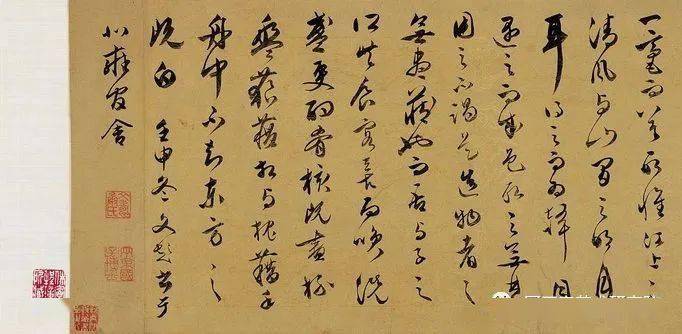 一毫而莫取惟江上之
清風與山間之明月
耳得之而為聲目
遇之而成色取之無禁
用之不竭是造物者之
無盡藏也而吾與子之
所共食客喜而笑洗
盞更酌肴核既盡杯
盤狼藉相與枕藉乎
舟中不知東方之
既白 壬申冬文彭書于
北雍官舍